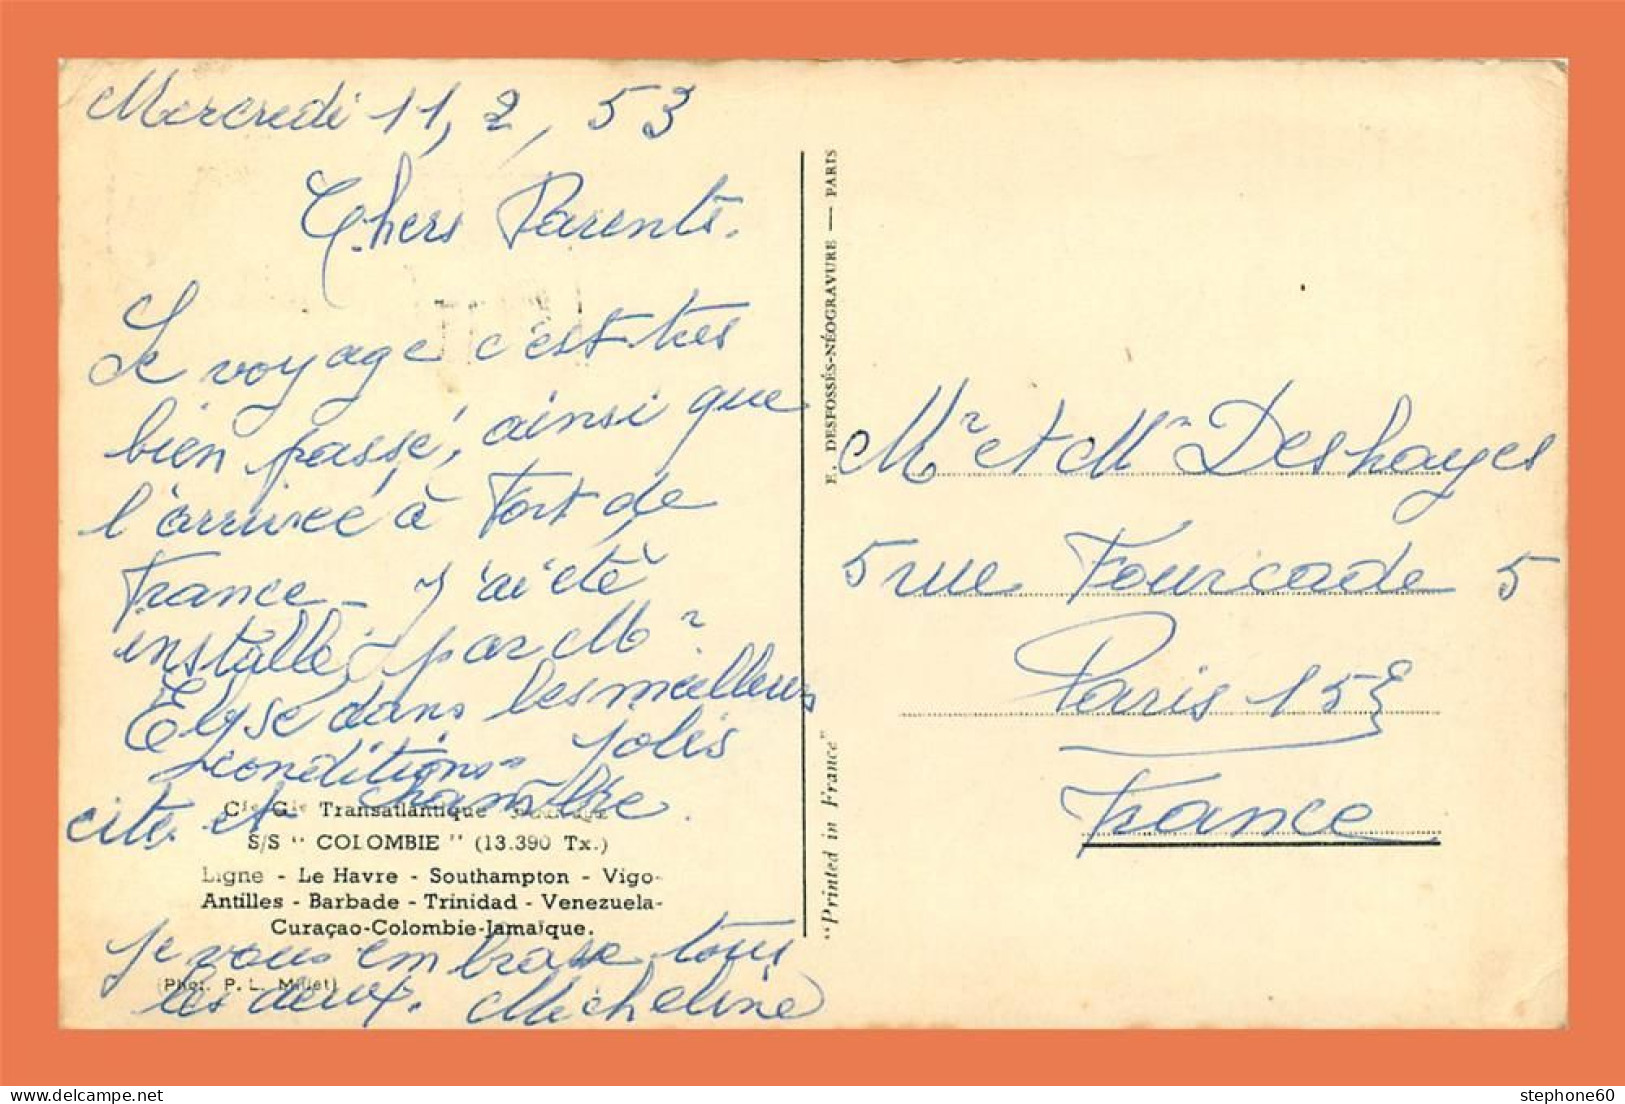 Mercredi 11, 2, 53
Chers Parents.
Le voyage c'est très
bien passé, ainsi que
l'arrivée à Fort de
France - J'ai été
installé par Mr
Elysé dans les meilleurs
conditions. jolis
cité et chambre.
Cie Gle Transatlantique
S/S "COLOMBIE" (13.390 Tx.)
Ligne - Le Havre - Southampton - Vigo-
Antilles - Barbade - Trinidad - Venezuela-
Curaçao-Colombie-Jamaïque.
je vous embrasse tous
(Phot. P. L. Millet)
les deux. Micheline
E. DESFOSSÉS-NÉOGRAVURE — PARIS
"Printed in France"
Mr et Mm Deshayes
5 rue Fourcade 5
Paris 15e
France
stephone60